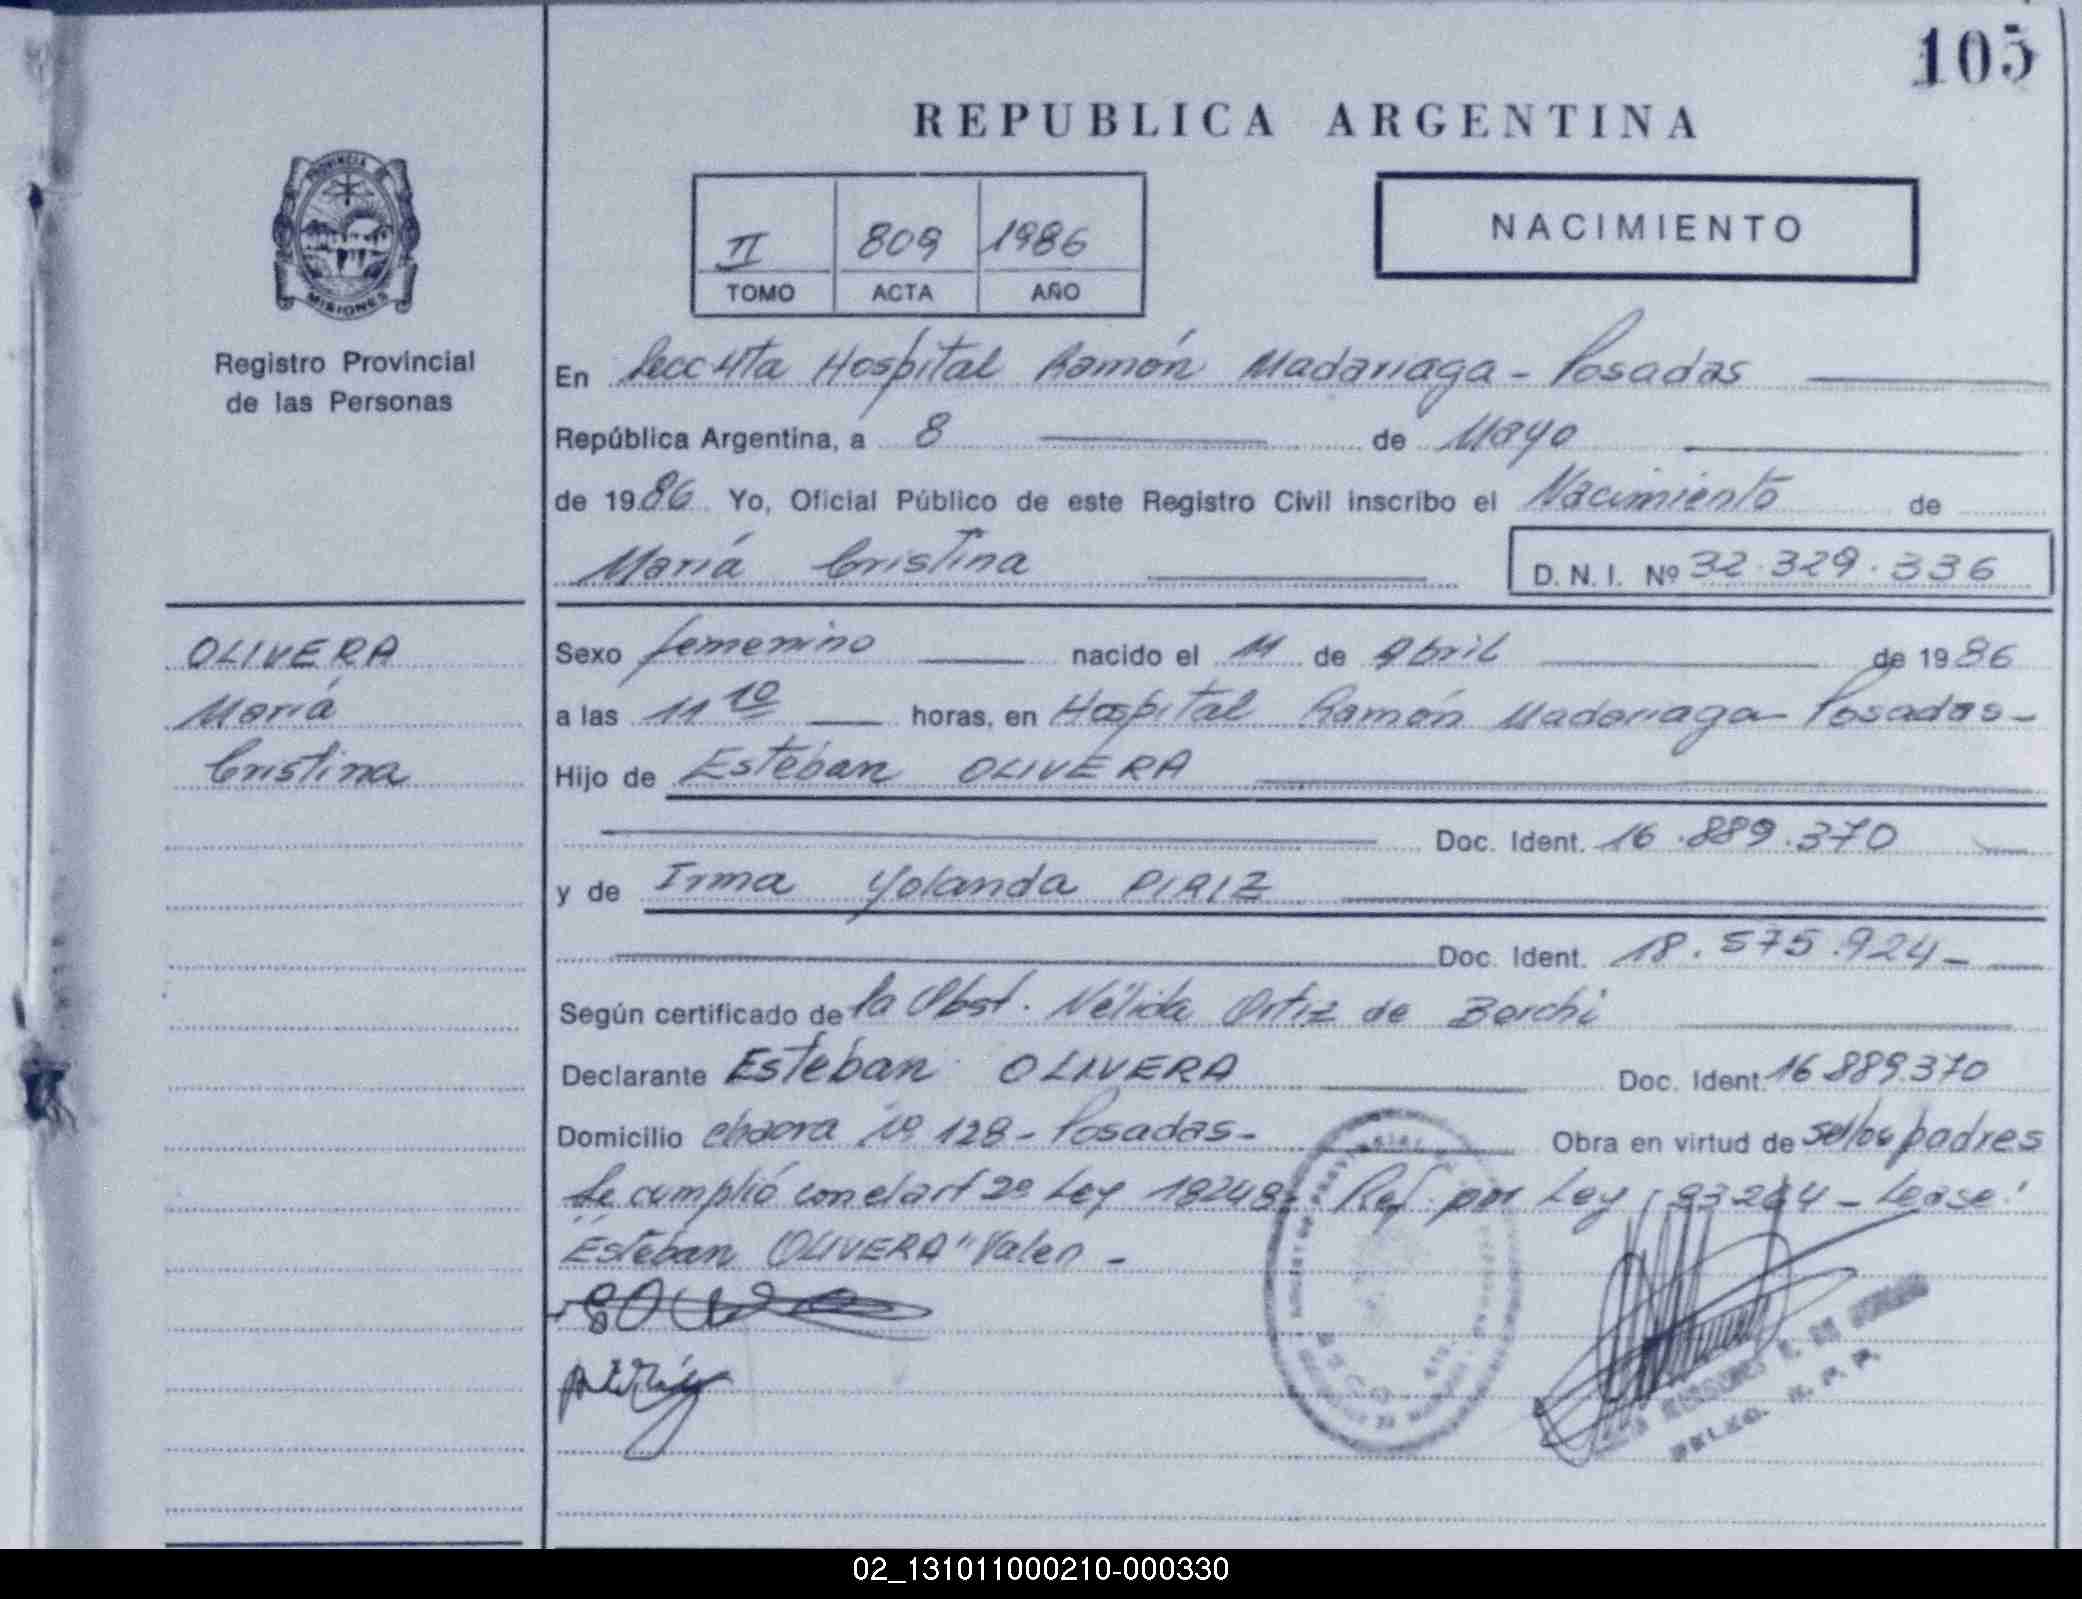 105
REPUBLICA ARGENTINA
PROVINCIA DE
MISIONES
Registro Provincial
de las Personas
II 809 1986
TOMO ACTA AÑO
NACIMIENTO
En Secc 4ta Hospital Ramón Madariaga - Posadas
República Argentina, a 8 de Mayo
de 1986 Yo, Oficial Público de este Registro Civil inscribo el Nacimiento de
María Cristina D. N. I. Nº 32.329.336
OLIVERA
María
Cristina
Sexo femenino nacido el 11 de Abril de 1986
a las 11 10 horas, en Hospital Ramón Madariaga - Posadas -
Hijo de Esteban OLIVERA
Doc. Ident. 16.889.370
y de Irma Yolanda PIRIZ
Doc. Ident. 18.575.924 -
Según certificado de la Obst. Nélida Ortiz de Borchi
Declarante Esteban OLIVERA Doc. Ident. 16889.370
Domicilio chacra Nº 128 - Posadas - Obra en virtud de ser los padres
Se cumplió con el art 2º Ley 18248 - Ref. por Ley 23264 - Lease:
"Esteban OLIVERA" Valen -
DELEG. R. P. P.
02_131011000210-000330